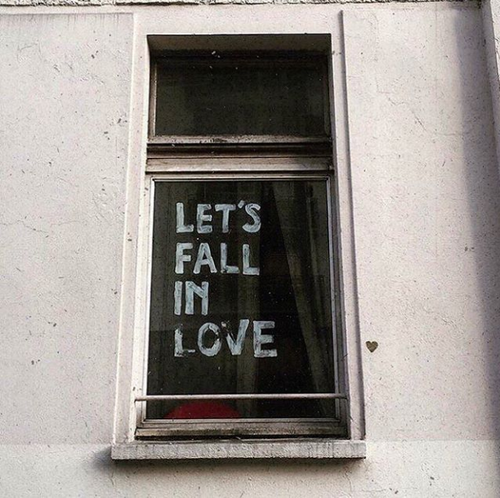 LET'S
FALL
IN
LOVE